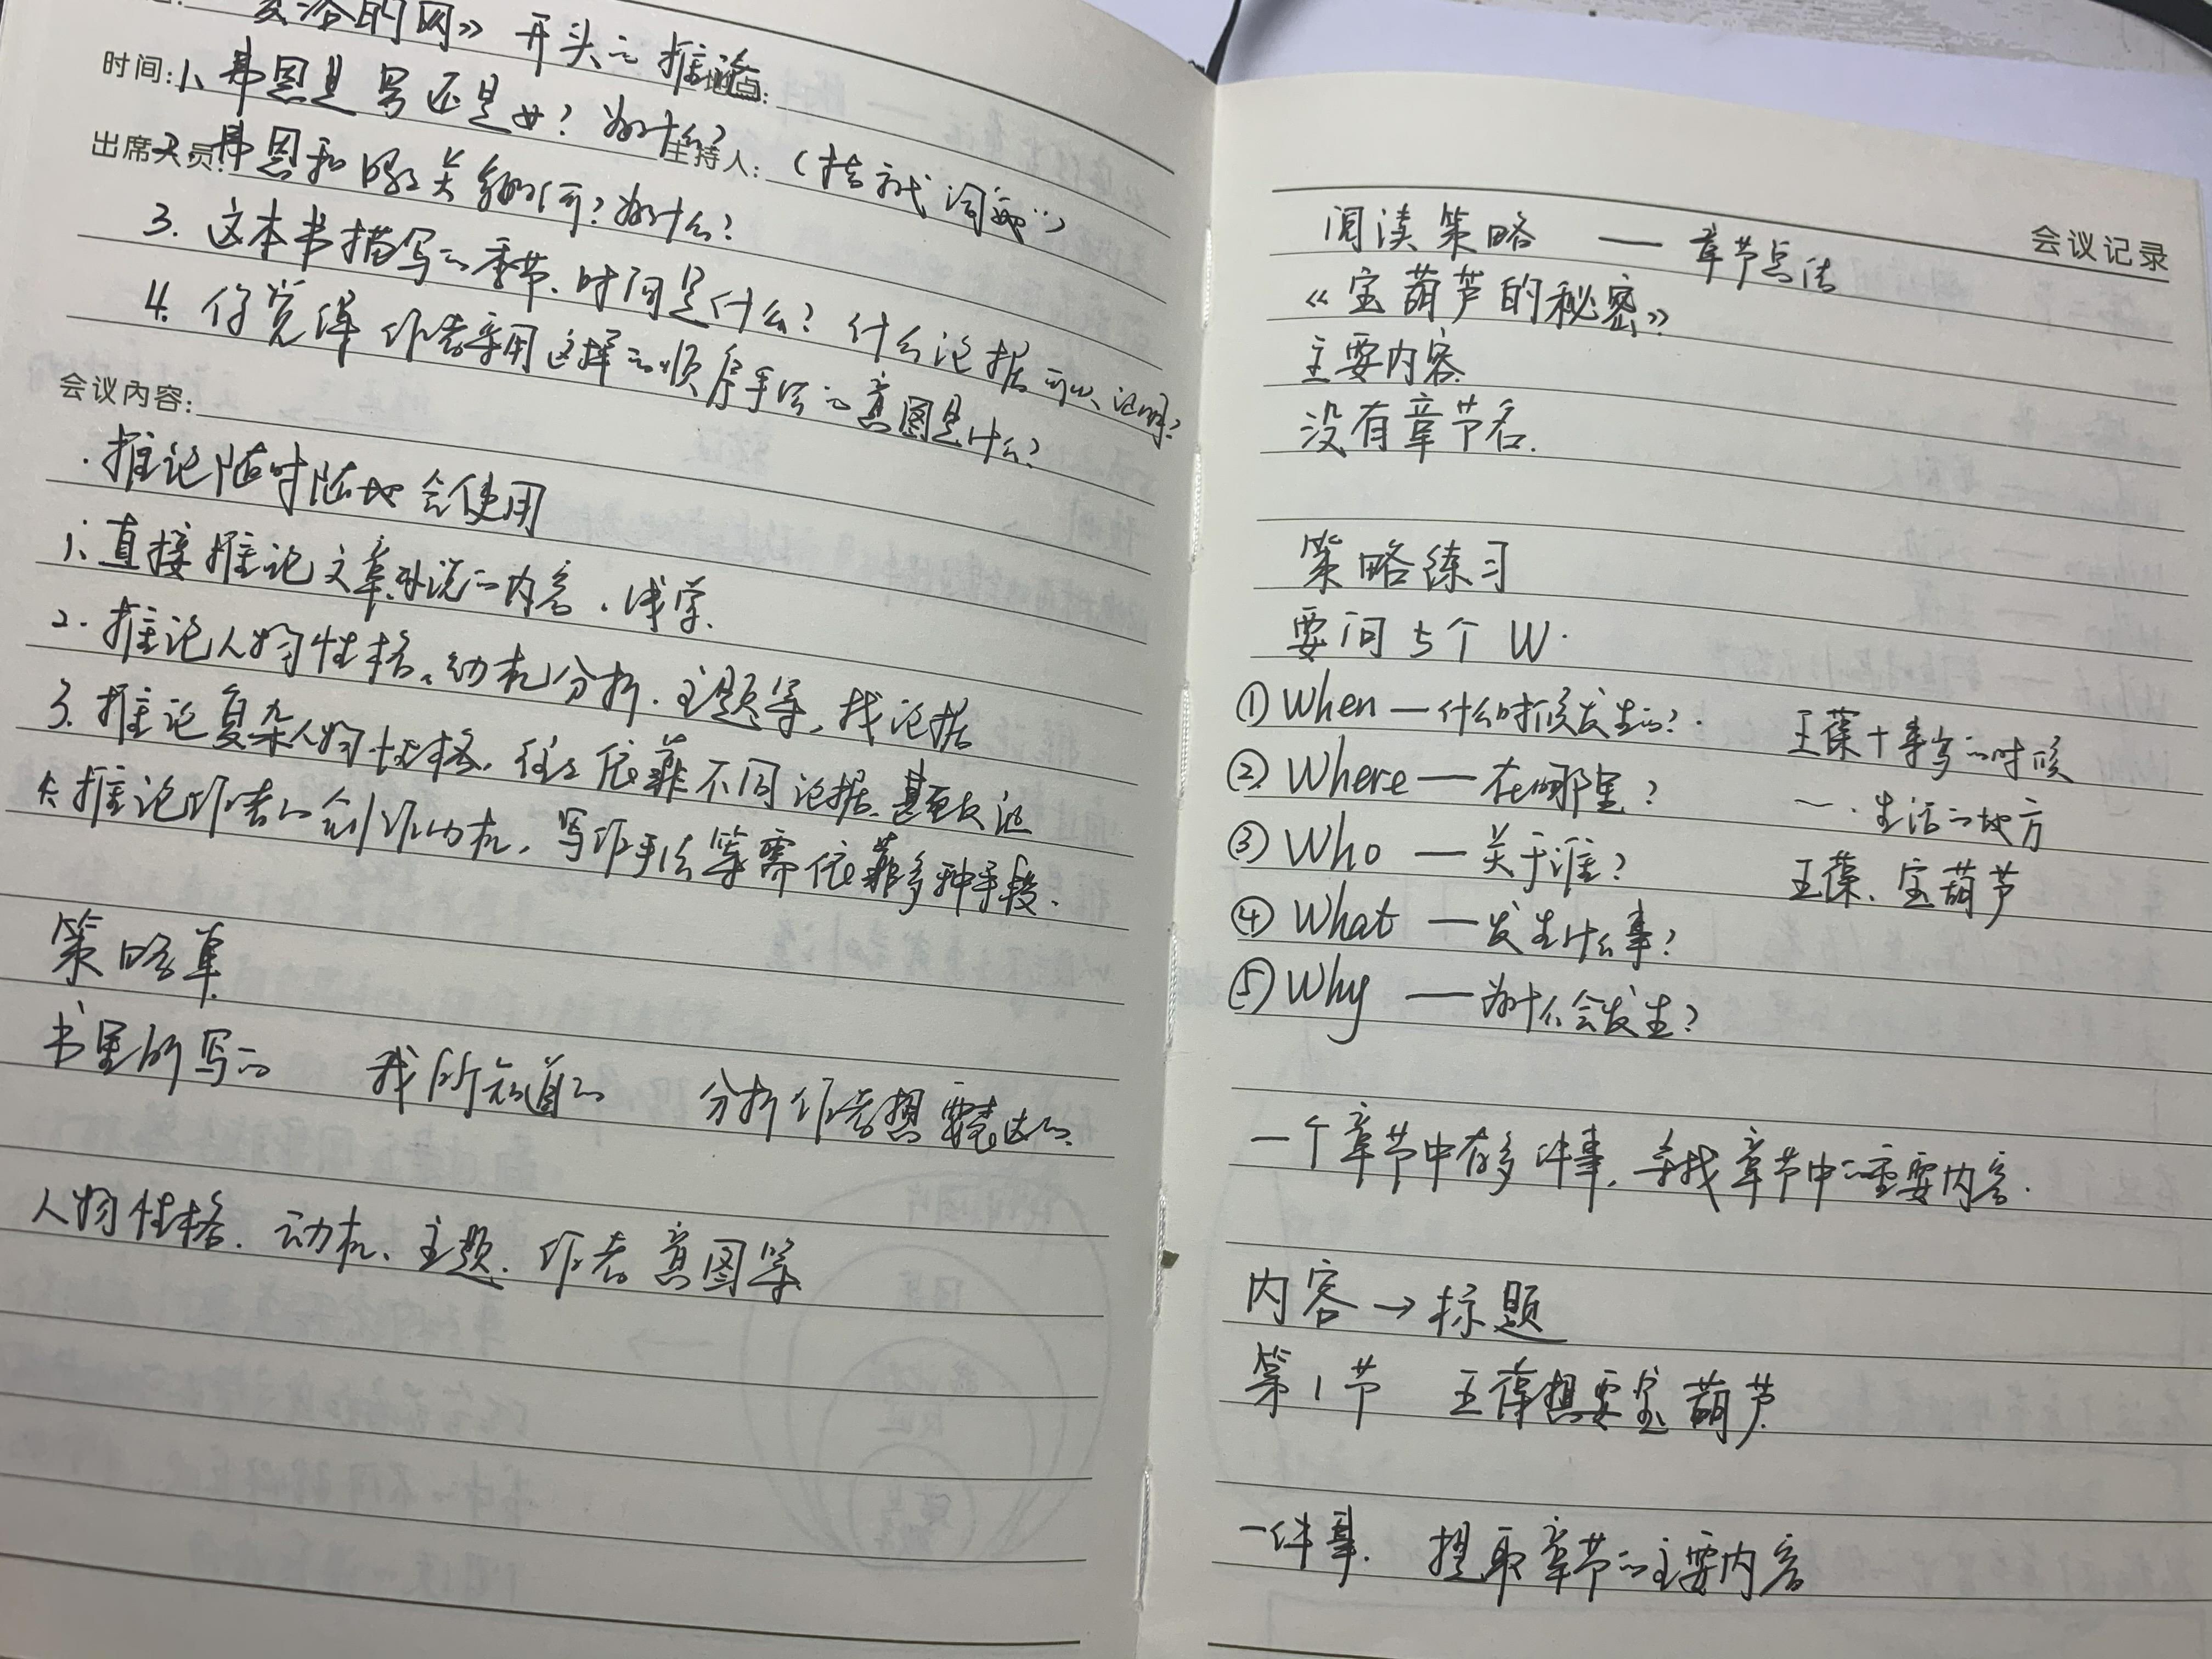 夏洛的网》开头的推论
时间: 地点:
1、弗恩是男还是女?为什么?
出席人员: 主持人:
2. 弗恩和 关系如何?为什么? (指示代词 )
3. 这本书描写的季节、时间是什么?什么论据可以说明?
4. 你觉得作者采用这样的顺序手法的意图是什么?
会议内容:
·推论随时随地会使用
1、直接推论文章未说的内容、
2. 推论人物性格、动机分析、主题等,找论据
3. 推论复杂人物性格,往往依靠不同论据、甚至
4. 推论作者的创作动机,写作手法等需依靠多种手段.
策略单
书里所写的 我所知道的 分析作者想要表达的
人物性格、动机、主题、作者意图等
会议记录
阅读策略 —— 章节点法
《宝葫芦的秘密》
主要内容
没有章节名.
策略练习
要问5个W.
①When — 什么时候发生的? 王葆十来岁的时候
②Where — 在哪里? 一. 生活的地方
③Who — 关于谁? 王葆、宝葫芦
④What — 发生什么事?
⑤Why — 为什么会发生?
一个章节中有多件事,寻找章节中的重要内容.
内容→标题
第1节 王葆想要宝葫芦
一件事. 提取章节的主要内容